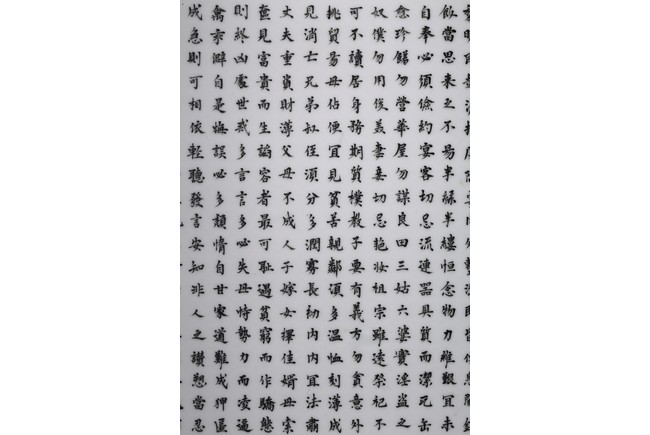 飲當思來之不易半絲半縷恒念物力維艱宜未
自奉必須儉約宴客切忌流連器具質而潔瓦缶
愈珍勿營華屋勿謀良田三姑六婆實淫盜之
奴僕勿用俊美妻妾切忌艷妝祖宗雖遠祭祀不
可不讀居身務期質樸教子要有義方勿貪意外
挑貿易毋佔便宜見貧苦親鄰須多溫恤刻薄成
見消亡兄弟叔侄須分多潤寡長幼內內宜法肅
丈夫重貲財薄父母不成人子嫁女擇佳婿毋索
奩見富貴而生諂容者最可恥遇貧窮而作驕態
則終凶處世戒多言言多必失毋恃勢力而凌逼
禽乖僻自是悔誤必多頹惰自甘家道難成狎匿
成急則可相依輕聽發言安知非人之讚愬當忍